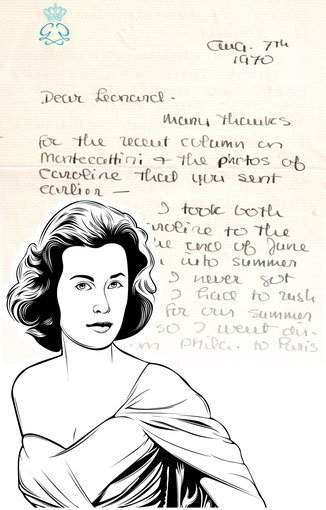 Aug. 7th
1970
Dear Leonard -
Many thanks
for the recent column on
Montecattini & the photos of
Caroline that you sent
earlier —
I took both
Caroline to the
the end of June
into summer
I never got
I had to rush
for our summer
so I went dis-
Phila. to Paris